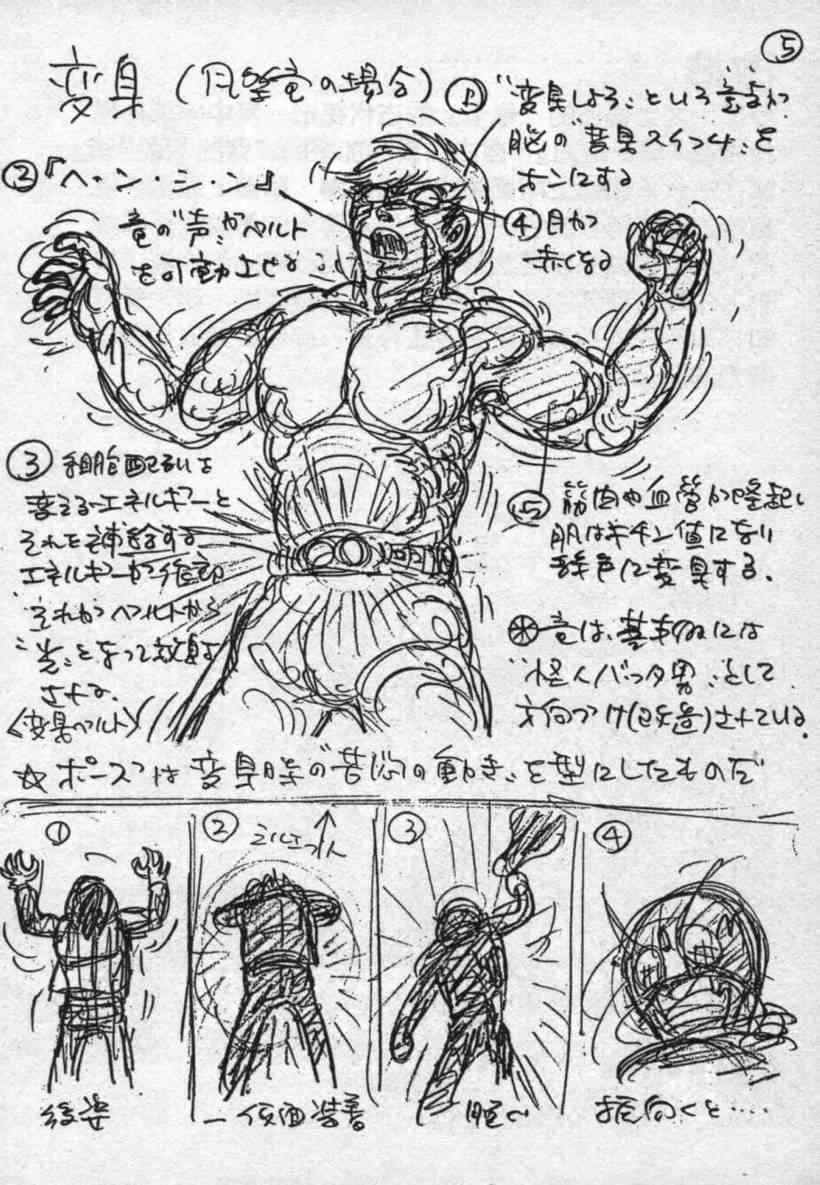 ⑤
変身（風祭竜の場合）
① "変身しよう"という意志が
脳の"変身スイッチ"を
オンにする
②『ヘ・ン・シ・ン』
竜の"声"がベルト
を可動させる
④ 目が
赤くなる
③ 細胞配列を
変えるエネルギーと
それを補給する
エネルギーが作動
それがベルトから
"光"となって放射
される。
〈変身ベルト〉
⑤ 筋肉や血管が隆起し
肌はキチン値になり
緑色に変身する。
※ 竜は、基本的には
"怪人バッタ男"として
方向づけ(改造)されている。
☆ポーズは変身時の"苦悶の動き"を型にしたものだ
①
②
③
④
後姿
一仮面装着
脱ぐ
振向くと‥‥